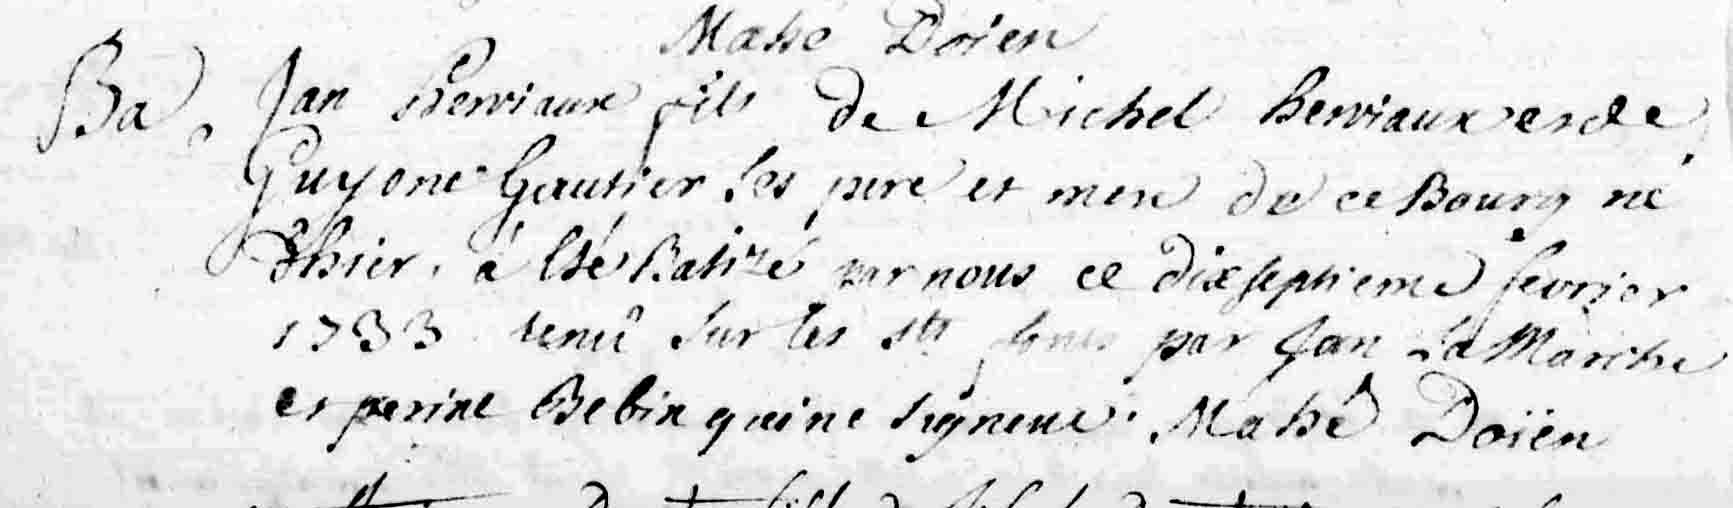 Mahé Doïen
Ba, Jan Herviaux fils de Michel Herviaux et de
Guyone Gautier ses pere et mere de ce Bourg né
d'hier, a esté Batizé par nous ce dixseptieme fevrier
1733 tenû sur les sts fonts par Jan La Marche
et perine Bebin qui ne signent. Mahé Doïen